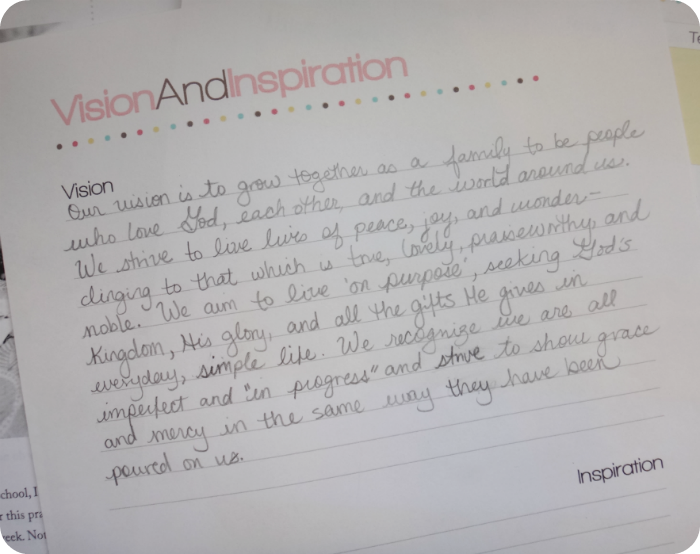 VisionAndInspiration
Vision
Our vision is to grow together as a family to be people
who love God, each other, and the world around us.
We strive to live lives of peace, joy, and wonder-
clinging to that which is true, lovely, praiseworthy, and
noble. We aim to live 'on purpose', seeking God's
Kingdom, His glory, and all the gifts He gives in
everyday, simple life. We recognize we are all
imperfect and "in progress" and strive to show grace
and mercy in the same way they have been
poured on us.
Inspiration
chool, I
this
eek. Not